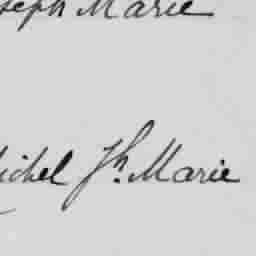 seph Marie
ichel Jh. Marie